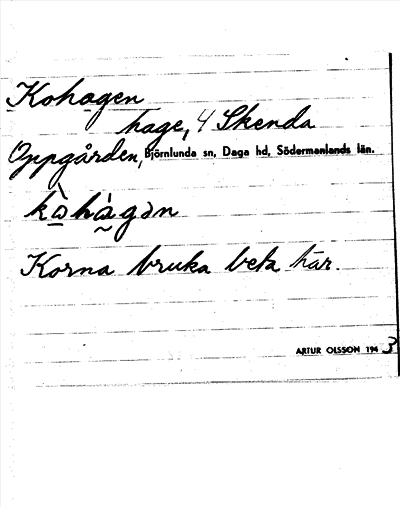 Kohagen
hage, 4 Skenda
Oppgården, Björnlunda sn, Daga hd, Södermanlands län.
kòhàgən
Korna bruka beta här.
ARTUR OLSSON 1943